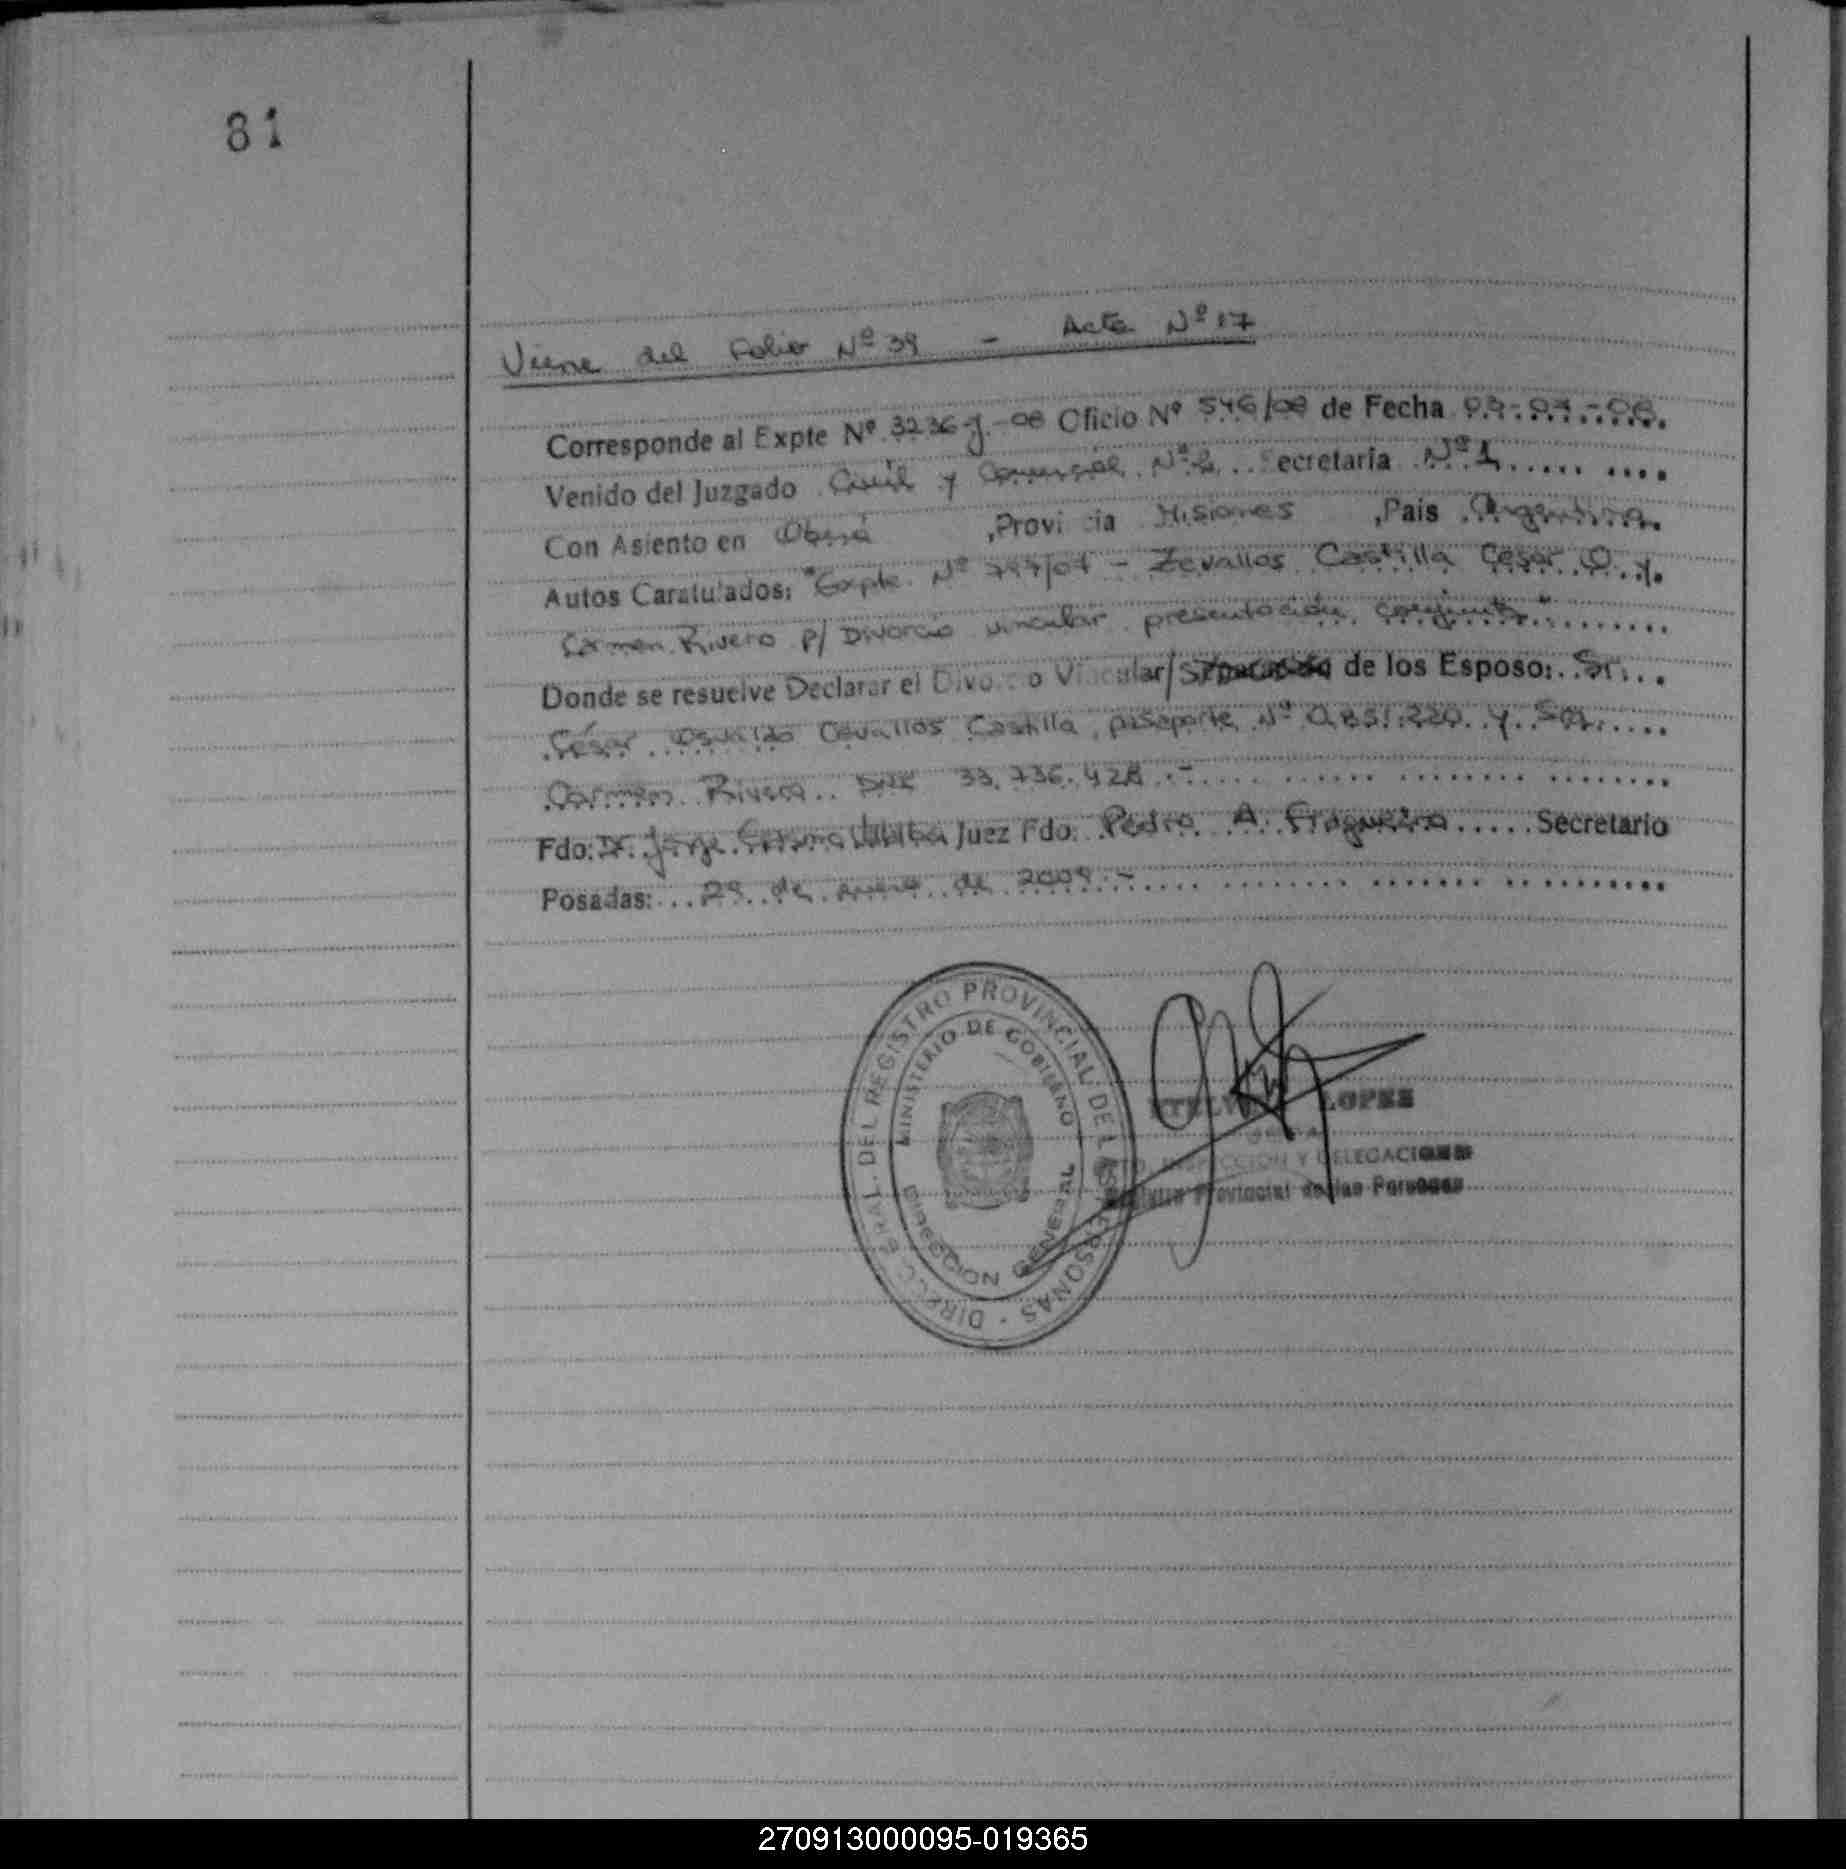 81
Viene del Folio Nº 39 - Acta Nº 17
Corresponde al Expte Nº 3236-J-08 Oficio Nº 546/08 de Fecha
Venido del Juzgado Civil y Comercial Nº 2 Secretaria Nº 1
Con Asiento en Oberá ,Provi cia Misiones ,Pais Argentina
Autos Caratulados: "Expte. Nº - Zevallos Castilla César O. y
Carmen Rivero p/ Divorcio vincular presentación conjunta"
Donde se resuelve Declarar el Divorcio Vincular/ de los Esposo: Sr.
César Osvaldo Cevallos Castilla, pasaporte Nº y Sra.
Carmen Rivero DNI 33.736.428.-
Fdo: Dr. Jorge Juez Fdo: Pedro A. Fragueiro Secretario
Posadas: 29 de enero de 2009.-
DIRECC. GRAL. DEL REGISTRO PROVINCIAL DE LAS PERSONAS
MINISTERIO DE GOBIERNO
DIRECCION GENERAL
LOPEZ
INSPECCION Y DELEGACIONES
Registro Provincial de las Personas
270913000095-019365